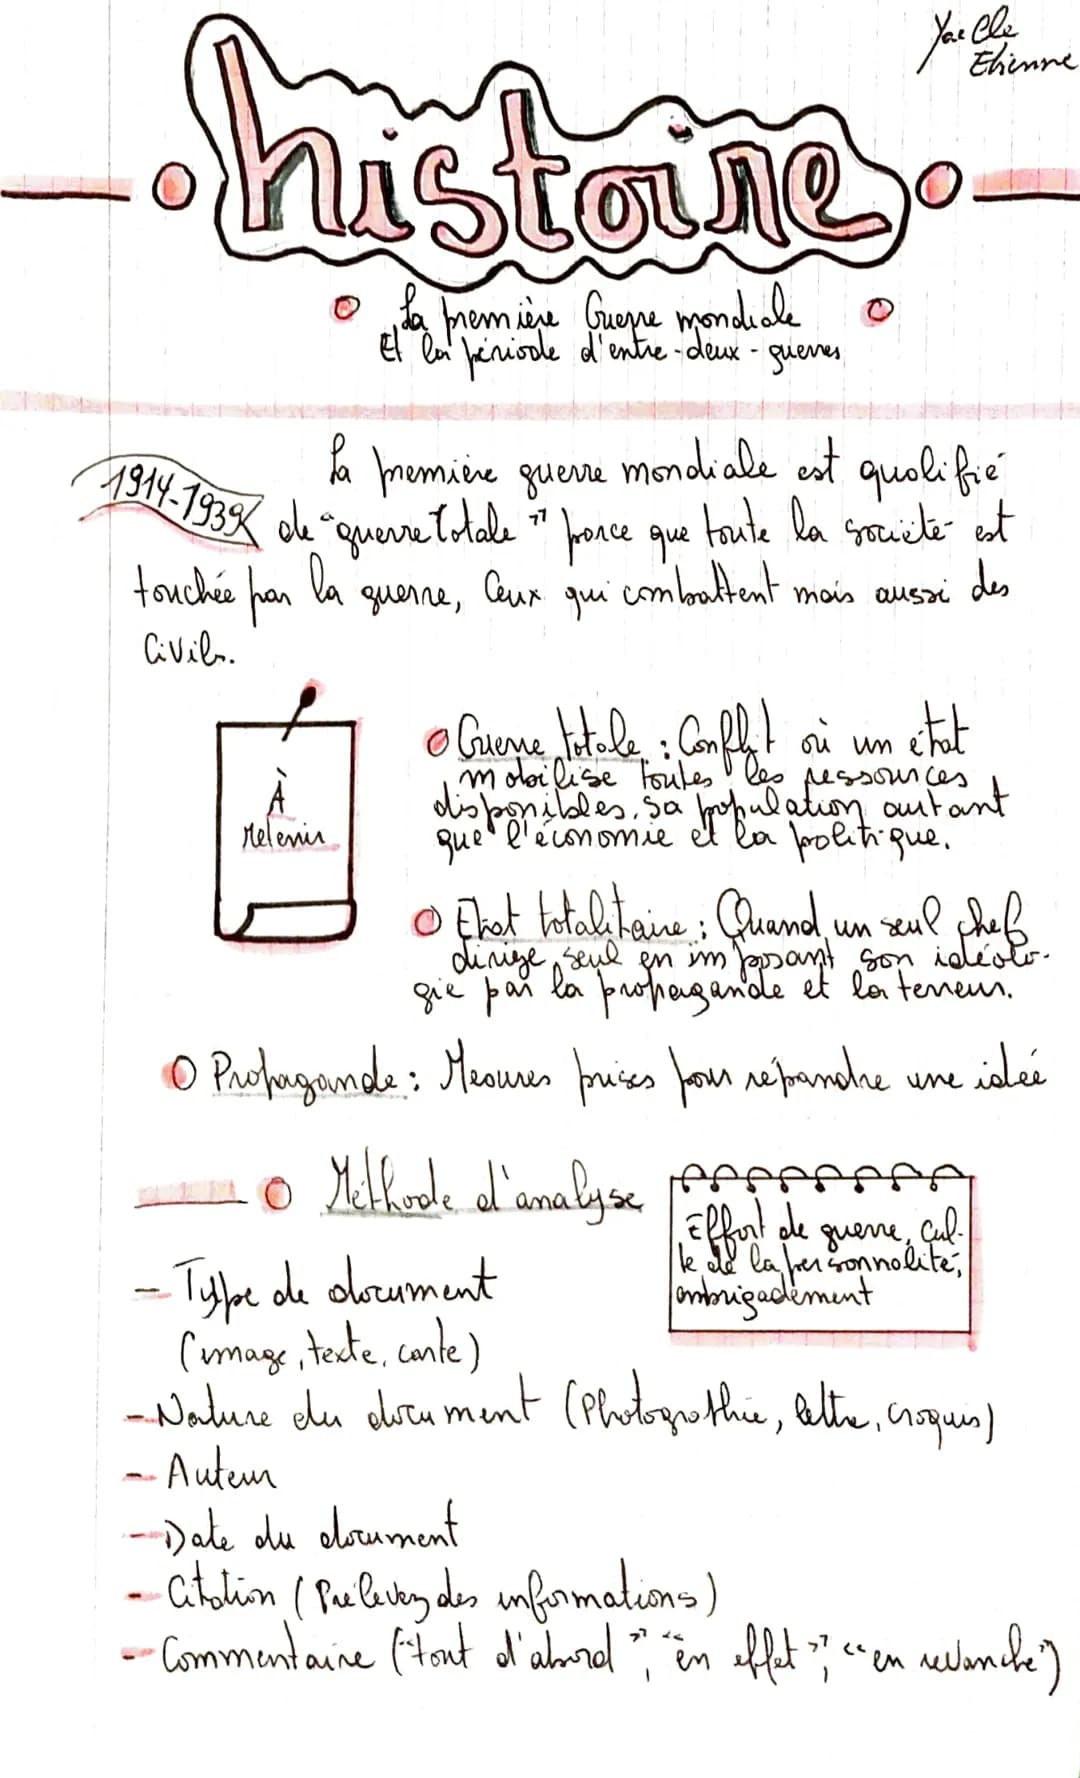 Yaelle
Etienne
histoire
La première Guerre mondiale
Et la période d'entre-deux-guerres
1914-1939
La première guerre mondiale est qualifié
de "guerre Totale" parce que toute la société est
touchée par la guerre, Ceux qui combattent mais aussi des
Civils.
À
retenir
Guerre totale : Conflit où un état
mobilise toutes les ressources
disponibles, sa population autant
que l'économie et la politique.
Etat totalitaire : Quand un seul chef
dirige seul en imposant son idéolo-
gie par la propagande et la terreur.
Propagande : Mesures prises pour répandre une idée
Méthode d'analyse
Effort de guerre, Cul-
te de la personnalité,
embrigadement
- Type de document
(image, texte, carte)
- Nature du document (Photographie, lettre, croquis)
- Auteur
- Date du document
- Citation (Prélevez des informations)
- Commentaire ("tout d'abord", "en effet", "en revanche")